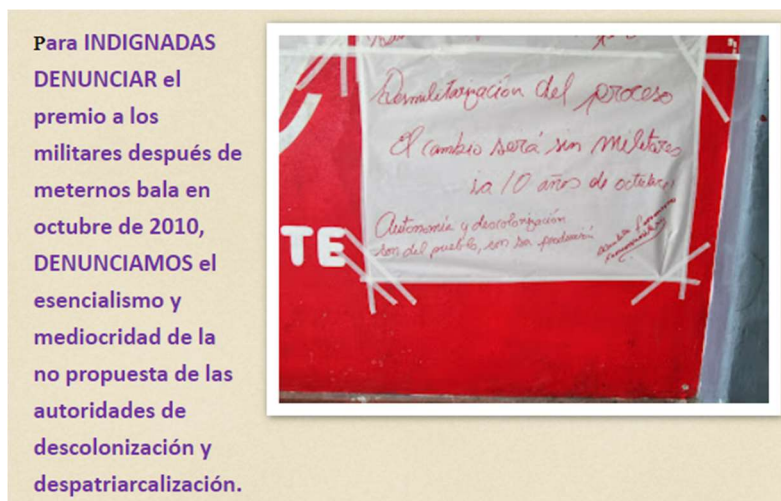 Para INDIGNADAS
DENUNCIAR el
premio a los
militares después de
meternos bala en
octubre de 2010,
DENUNCIAMOS el
esencialismo y
mediocridad de la
no propuesta de las
autoridades de
descolonización y
despatriarcalización.
Desmilitarización del proceso
El cambio será sin militares
10 años de octubre
Autonomía y descolonización
son del pueblo, son su
TE